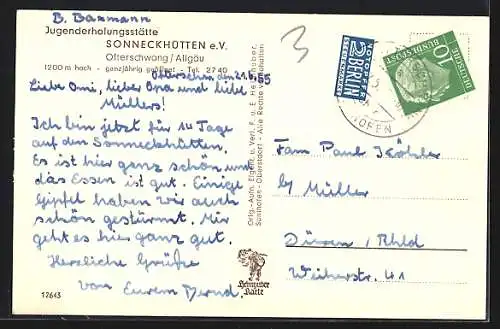 B. Baxmann
Jugenderholungsstätte
SONNECKHÜTTEN e.V.
Ofterschwang / Allgäu
1200 m hoch - ganzjährig geöffnet - Tel. 2740
Ofterschw. den 21.6.55
Liebe Omi, lieber Opa und liebe
Müllers!
Ich bin jetzt für 14 Tage
auf den Sonneckhütten.
Es ist hier ganz schön und
das Essen ist gut. Einige
Gipfel haben wir auch
schön gestürmt. Mir
geht es hier ganz gut.
Herzliche Grüße
von Eurem Bernd.
12643
Orig.-Aufn. Eigent. u. Verl. F. u. E. Heimhuber,
Sonthofen - Oberstdorf - Alle Rechte vorbehalten
Heimhuber
Karte
3
NOTOPFER
2 BERLIN
STEUERMARKE
10
DEUTSCHE
BUNDESPOST
HOFEN
Fam Paul Köhler
b/ Müller
Düren / Rhld
Weiherstr. 41